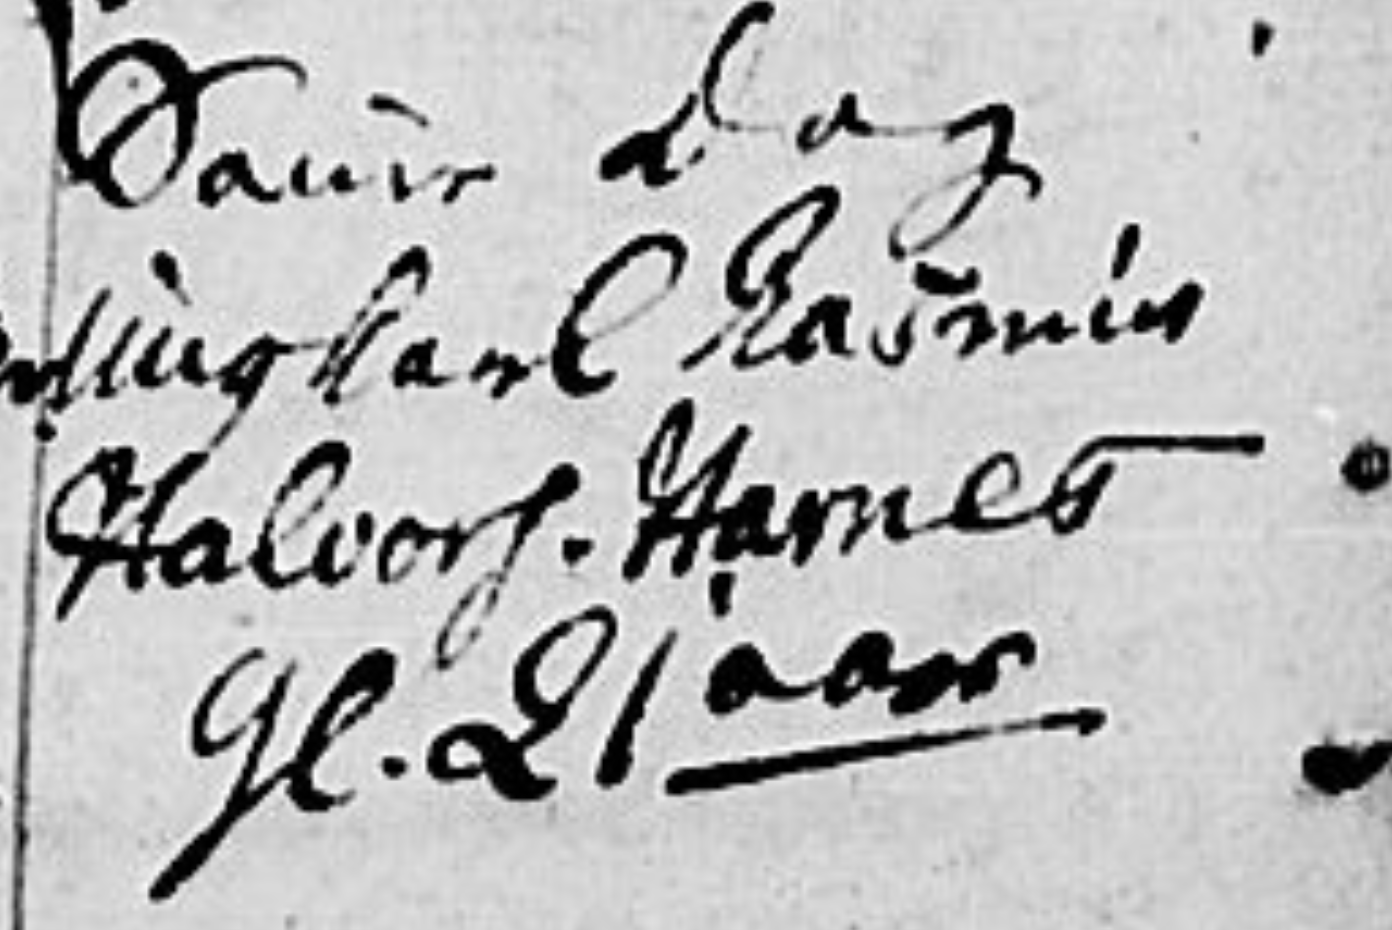 Samme Dag
Ungkarl Rasmus
Halvors. Harnes
gl. 21 aar